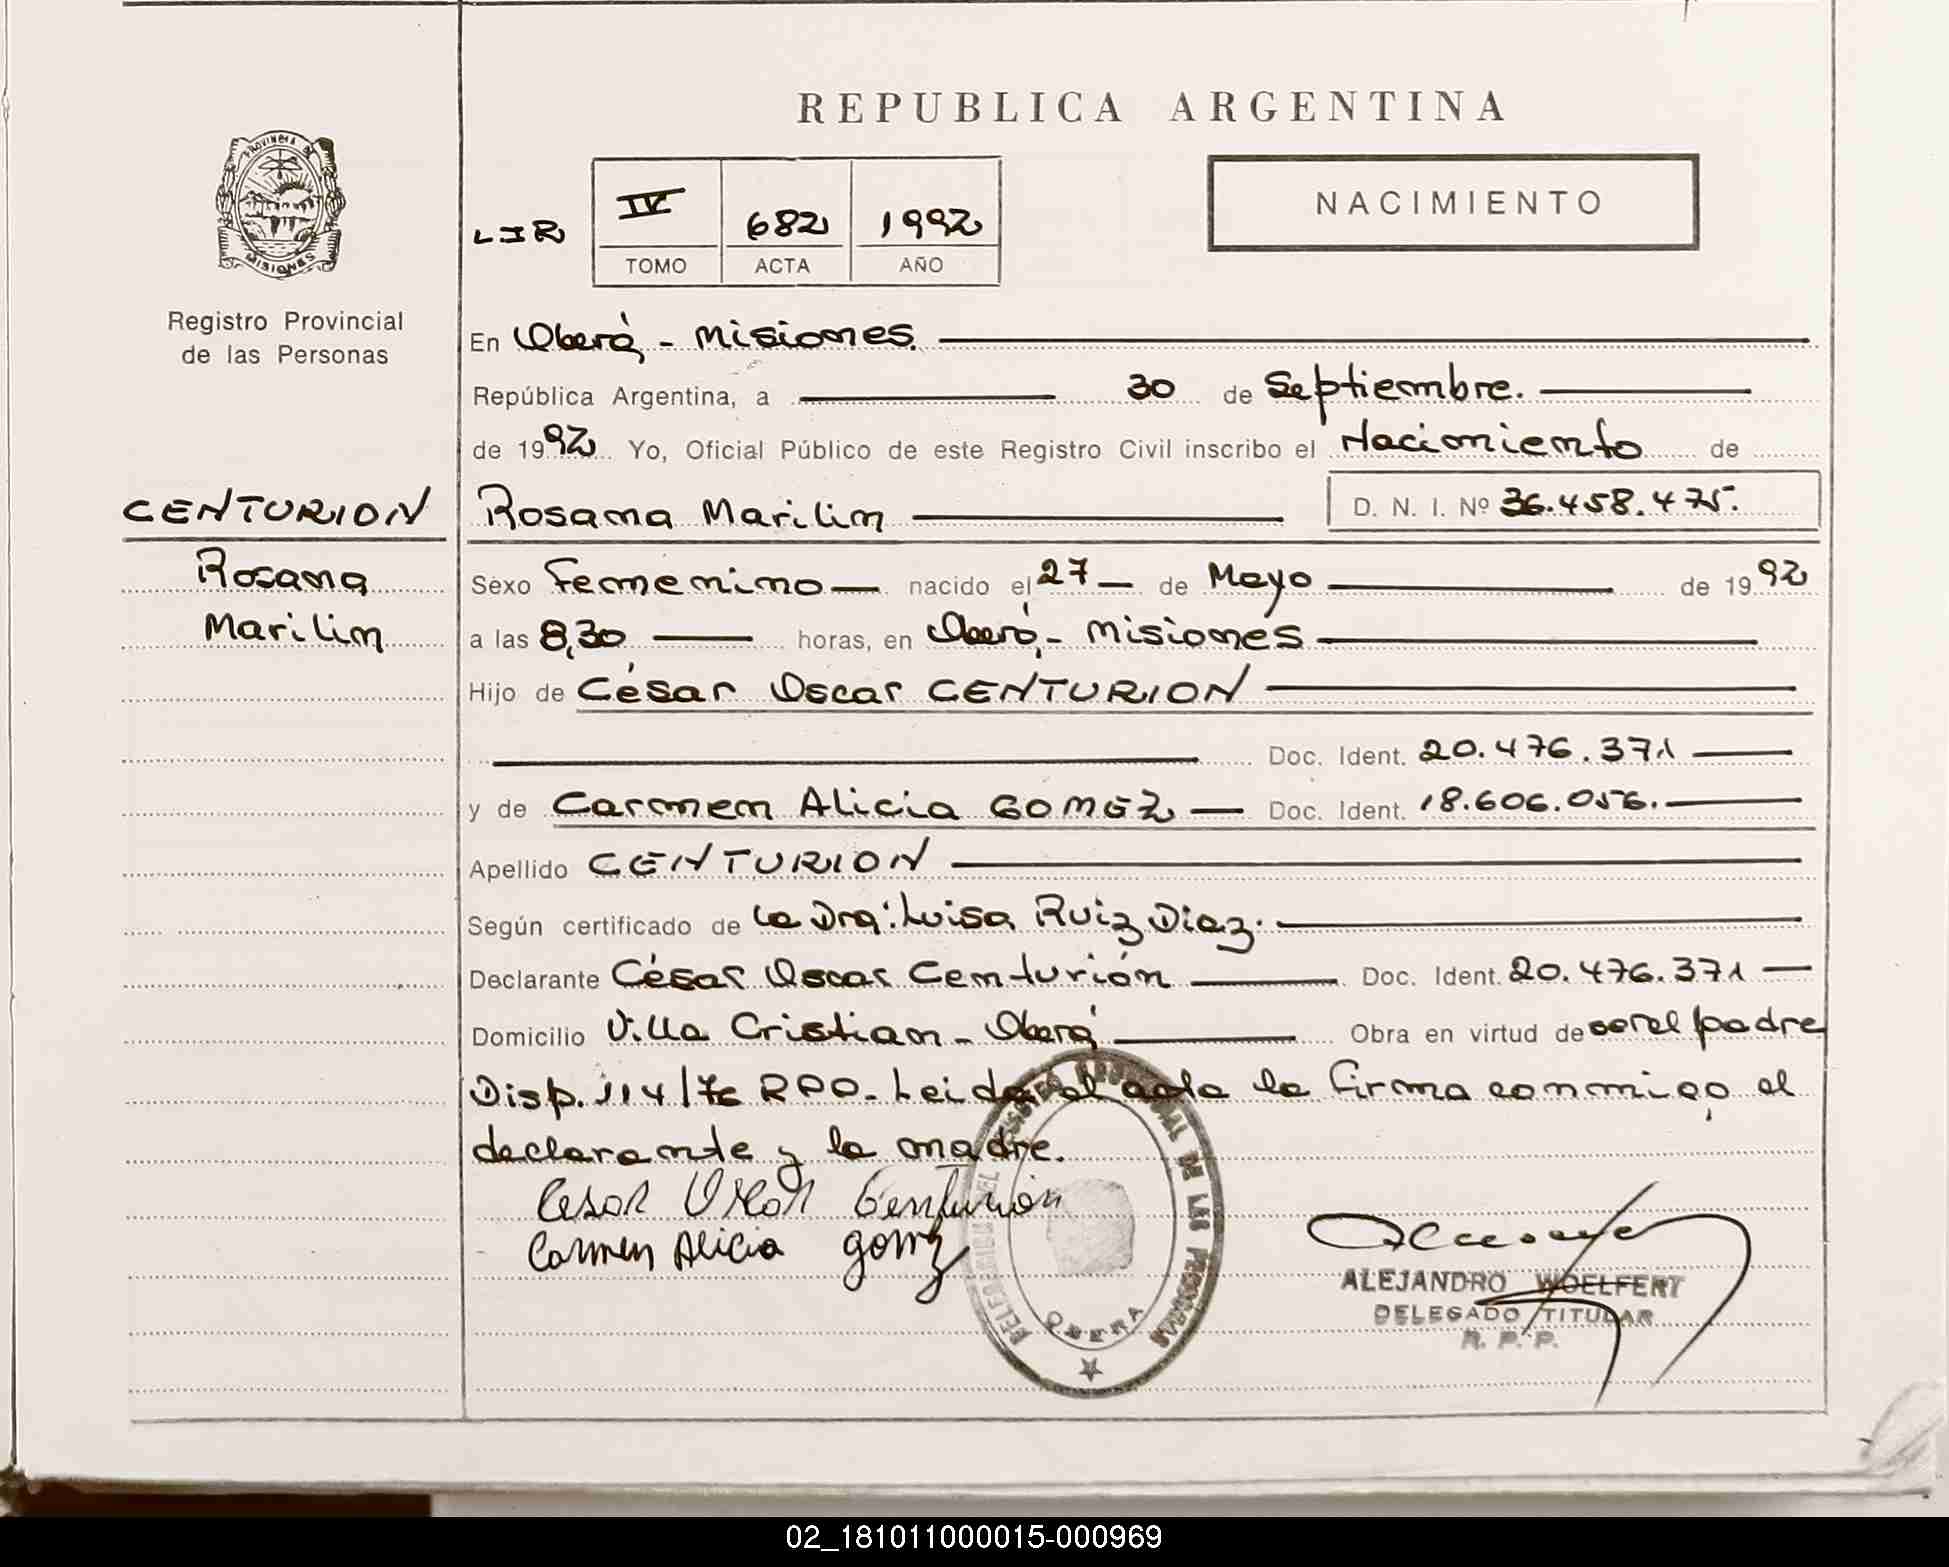 REPUBLICA ARGENTINA
PROVINCIA DE
MISIONES
Registro Provincial
de las Personas
LIR
IV 682 1992
TOMO ACTA AÑO
NACIMIENTO
En Oberá - Misiones.
República Argentina, a 30 de Septiembre.
de 1992 Yo, Oficial Público de este Registro Civil inscribo el Nacimiento de
CENTURION
Rosana Marilin
D. N. I. Nº 36.458.475.
Rosana
Marilin
Sexo Femenino nacido el 27 de Mayo de 1992
a las 8,30 horas, en Oberá, - Misiones
Hijo de César Oscar CENTURION
Doc. Ident. 20.476.371
y de Carmen Alicia GOMEZ Doc. Ident. 18.606.056.
Apellido CENTURION
Según certificado de la Dra: Luisa Ruiz Diaz.
Declarante César Oscar Centurión Doc. Ident. 20.476.371
Domicilio Villa Cristian - Oberá Obra en virtud de ser el padre
Disp. 114/76 RPP. Leida el acta la firma conmigo el
declarante y la madre.
Cesar Oscar Centurión
Carmen Alicia gomez
DELEGACION DEL REGISTRO PROVINCIAL DE LAS PERSONAS
OBERA
ALEJANDRO WOELFERT
DELEGADO TITULAR
R. P. P.
02_181011000015-000969